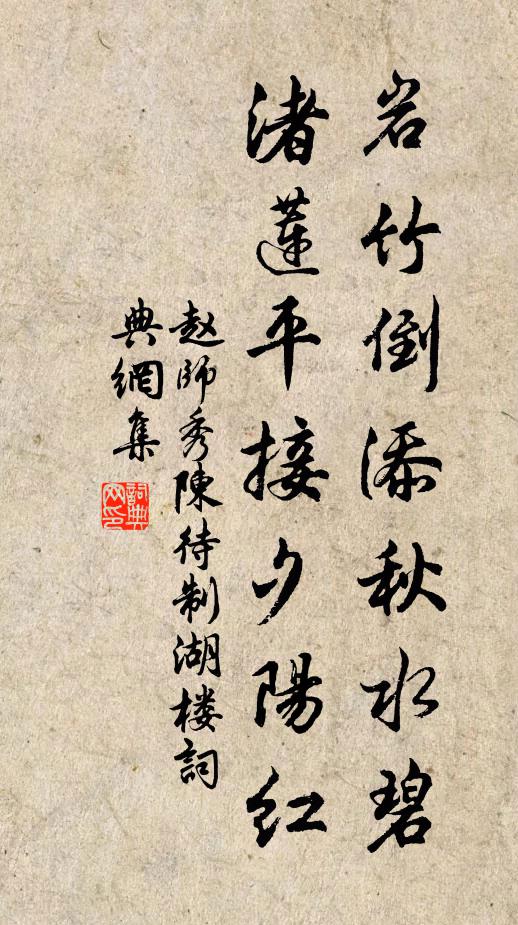 岩竹倒添秋水碧
渚蓮平接夕陽紅
赵師秀陳待制湖楼詞
典網集
詞典
网印